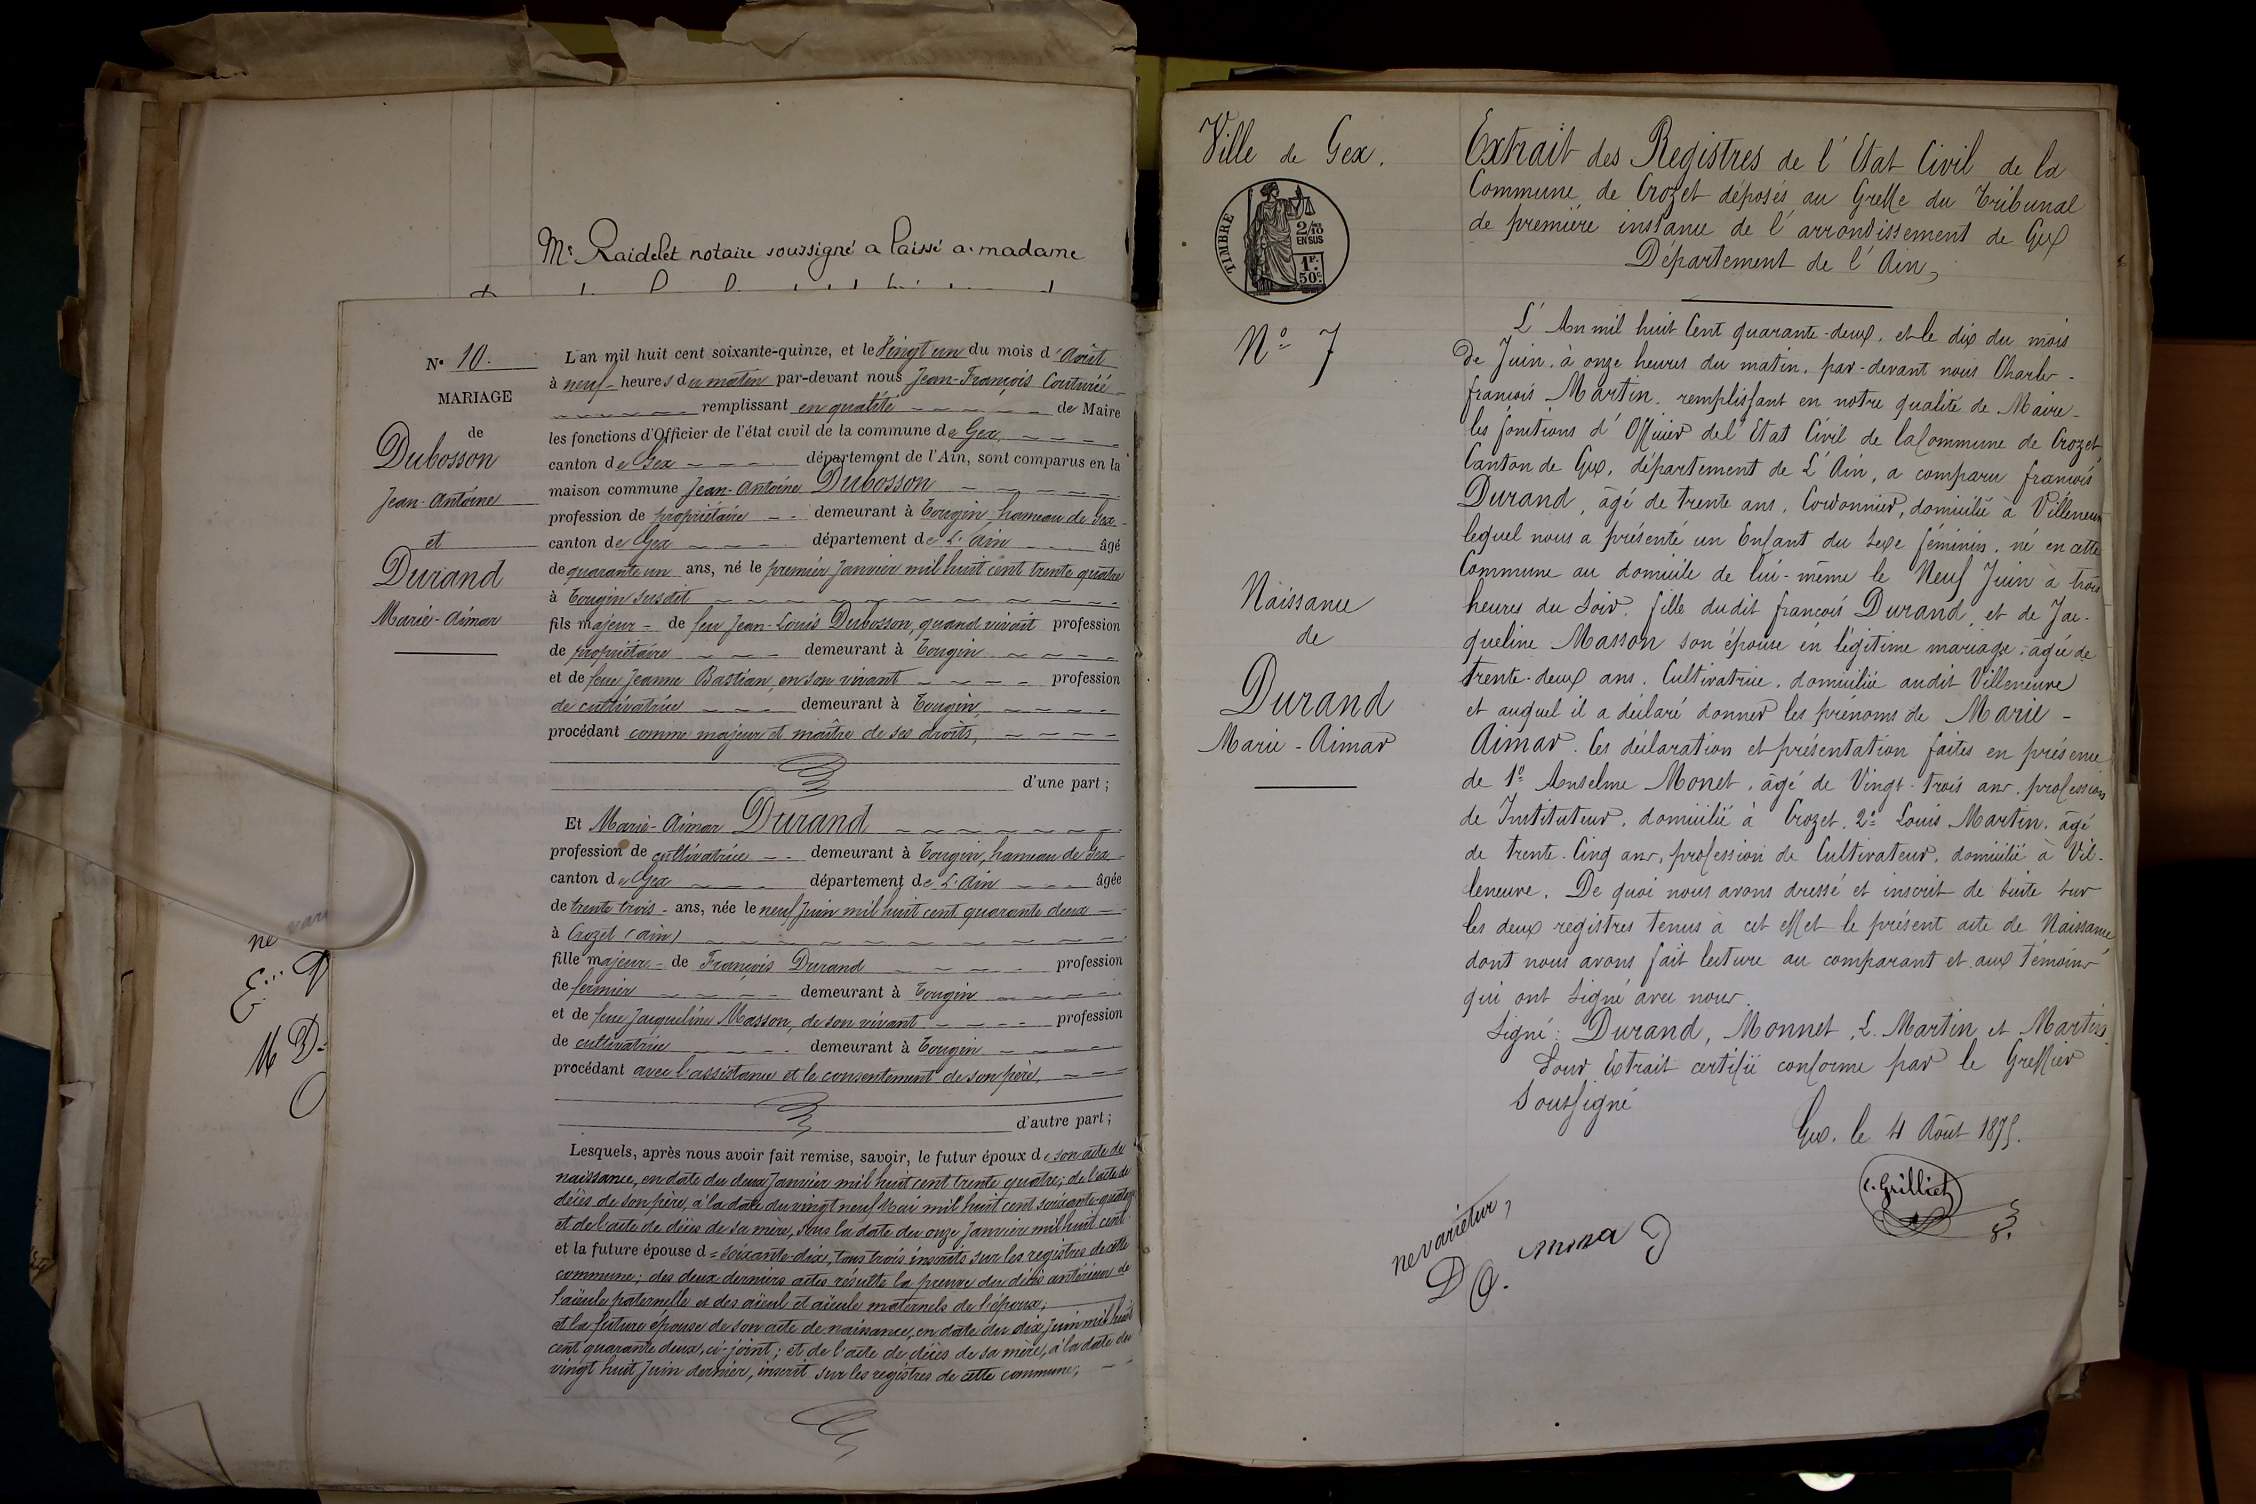 Me Raidelet notaire soussigné a laissé a madame
ne vari
M D
N° 10.
MARIAGE
de
Dubosson
Jean-Antoine
et
Durand
Marie-Aimar
L'an mil huit cent soixante-quinze, et le Vingt un du mois d'Août
à neuf heures du matin par-devant nous Jean-François Couturié
remplissant en qualité de Maire
les fonctions d'Officier de l'état civil de la commune de Gex,
canton de Gex département de l'Ain, sont comparus en la
maison commune Jean-Antoine Dubosson
profession de propriétaire demeurant à Tougin, hameau de Gex
canton de Gex département de L'Ain âgé
de quarante un ans, né le premier Janvier mil huit cent trente quatre
à Tougin susdit
fils majeur de feu Jean-Louis Dubosson, quand vivait profession
de propriétaire demeurant à Tougin
et de feue Jeanne Bastian, en son vivant profession
de cultivatrice demeurant à Tougin,
procédant comme majeur et maître de ses droits,
d'une part;
Et Marie-Aimar Durand
profession de cultivatrice demeurant à Tougin, hameau de Gex
canton de Gex département de L'Ain âgée
de trente trois ans, née le neuf Juin mil huit cent quarante deux
à Crozet (Ain)
fille majeure de François Durand profession
de fermier demeurant à Tougin
et de feue Jacqueline Masson, de son vivant profession
de cultivatrice demeurant à Tougin
procédant avec l'assistance et le consentement de son père,
d'autre part;
Lesquels, après nous avoir fait remise, savoir, le futur époux de son acte de
naissance, en date du deux Janvier mil huit cent trente quatre; de l'acte de
décès de son père, à la date du vingt neuf Mai mil huit cent soixante-quatorze
et de l'acte de décès de sa mère, sous la date du onze Janvier mil huit cent
et la future épouse d= soixante-dix, tous trois inscrits sur les registres de cette
commune; des deux derniers actes résulte la preuve du décès antérieur de
l'aïeule paternelle et des aïeul et aïeule maternels de l'époux;
et la future épouse de son acte de naissance, en date du dix Juin mil huit
cent quarante deux, ci-joint; et de l'acte de décès de sa mère, à la date du
vingt huit Juin dernier, inscrit sur les registres de cette commune;
Ville de Gex.
TIMBRE
2/10
EN SUS
1F.
50c.
N° 7
Naissance
de
Durand
Marie-Aimar
Extrait des Registres de l'Etat Civil de la
Commune de Crozet déposés au Greffe du Tribunal
de première instance de l'arrondissement de Gex
Département de l'Ain,
L'An mil huit Cent quarante-deux, et le dix du mois
de Juin, à onze heures du matin, par-devant nous Charles-
françois Martin, remplissant en notre qualité de Maire
les fonctions d'Officier de l'Etat Civil de la Commune de Crozet,
Canton de Gex, département de L'Ain, a comparu françois
Durand, âgé de trente ans, Cordonnier, domicilié à Villeneuve
lequel nous a présenté un Enfant du sexe féminin, né en cette
Commune au domicile de lui-même le Neuf Juin à trois
heures du Soir, fille dudit françois Durand, et de Jac-
queline Masson son épouse en légitime mariage, âgée de
trente-deux ans, Cultivatrice, domiciliée audit Villeneuve
et auquel il a déclaré donner les prénoms de Marie-
Aimar. Ces déclaration et présentation faites en présence
de 1° Anselme Monet, âgé de Vingt-trois ans, profession
de Instituteur, domicilié à Crozet, 2° Louis Martin, âgé
de trente-Cinq ans, profession de Cultivateur, domicilié à Vil-
leneuve. De quoi nous avons dressé et inscrit de suite sur
les deux registres tenus à cet effet le présent acte de Naissance
dont nous avons fait lecture au comparant et aux témoins
qui ont Signé avec nous.
Signé: Durand, Monnet, L. Martin et Martin.
Pour Extrait certifié conforme par le Greffier
Soussigné
Gex, le 4 Août 1875.
C. Grilliet
ne varietur,